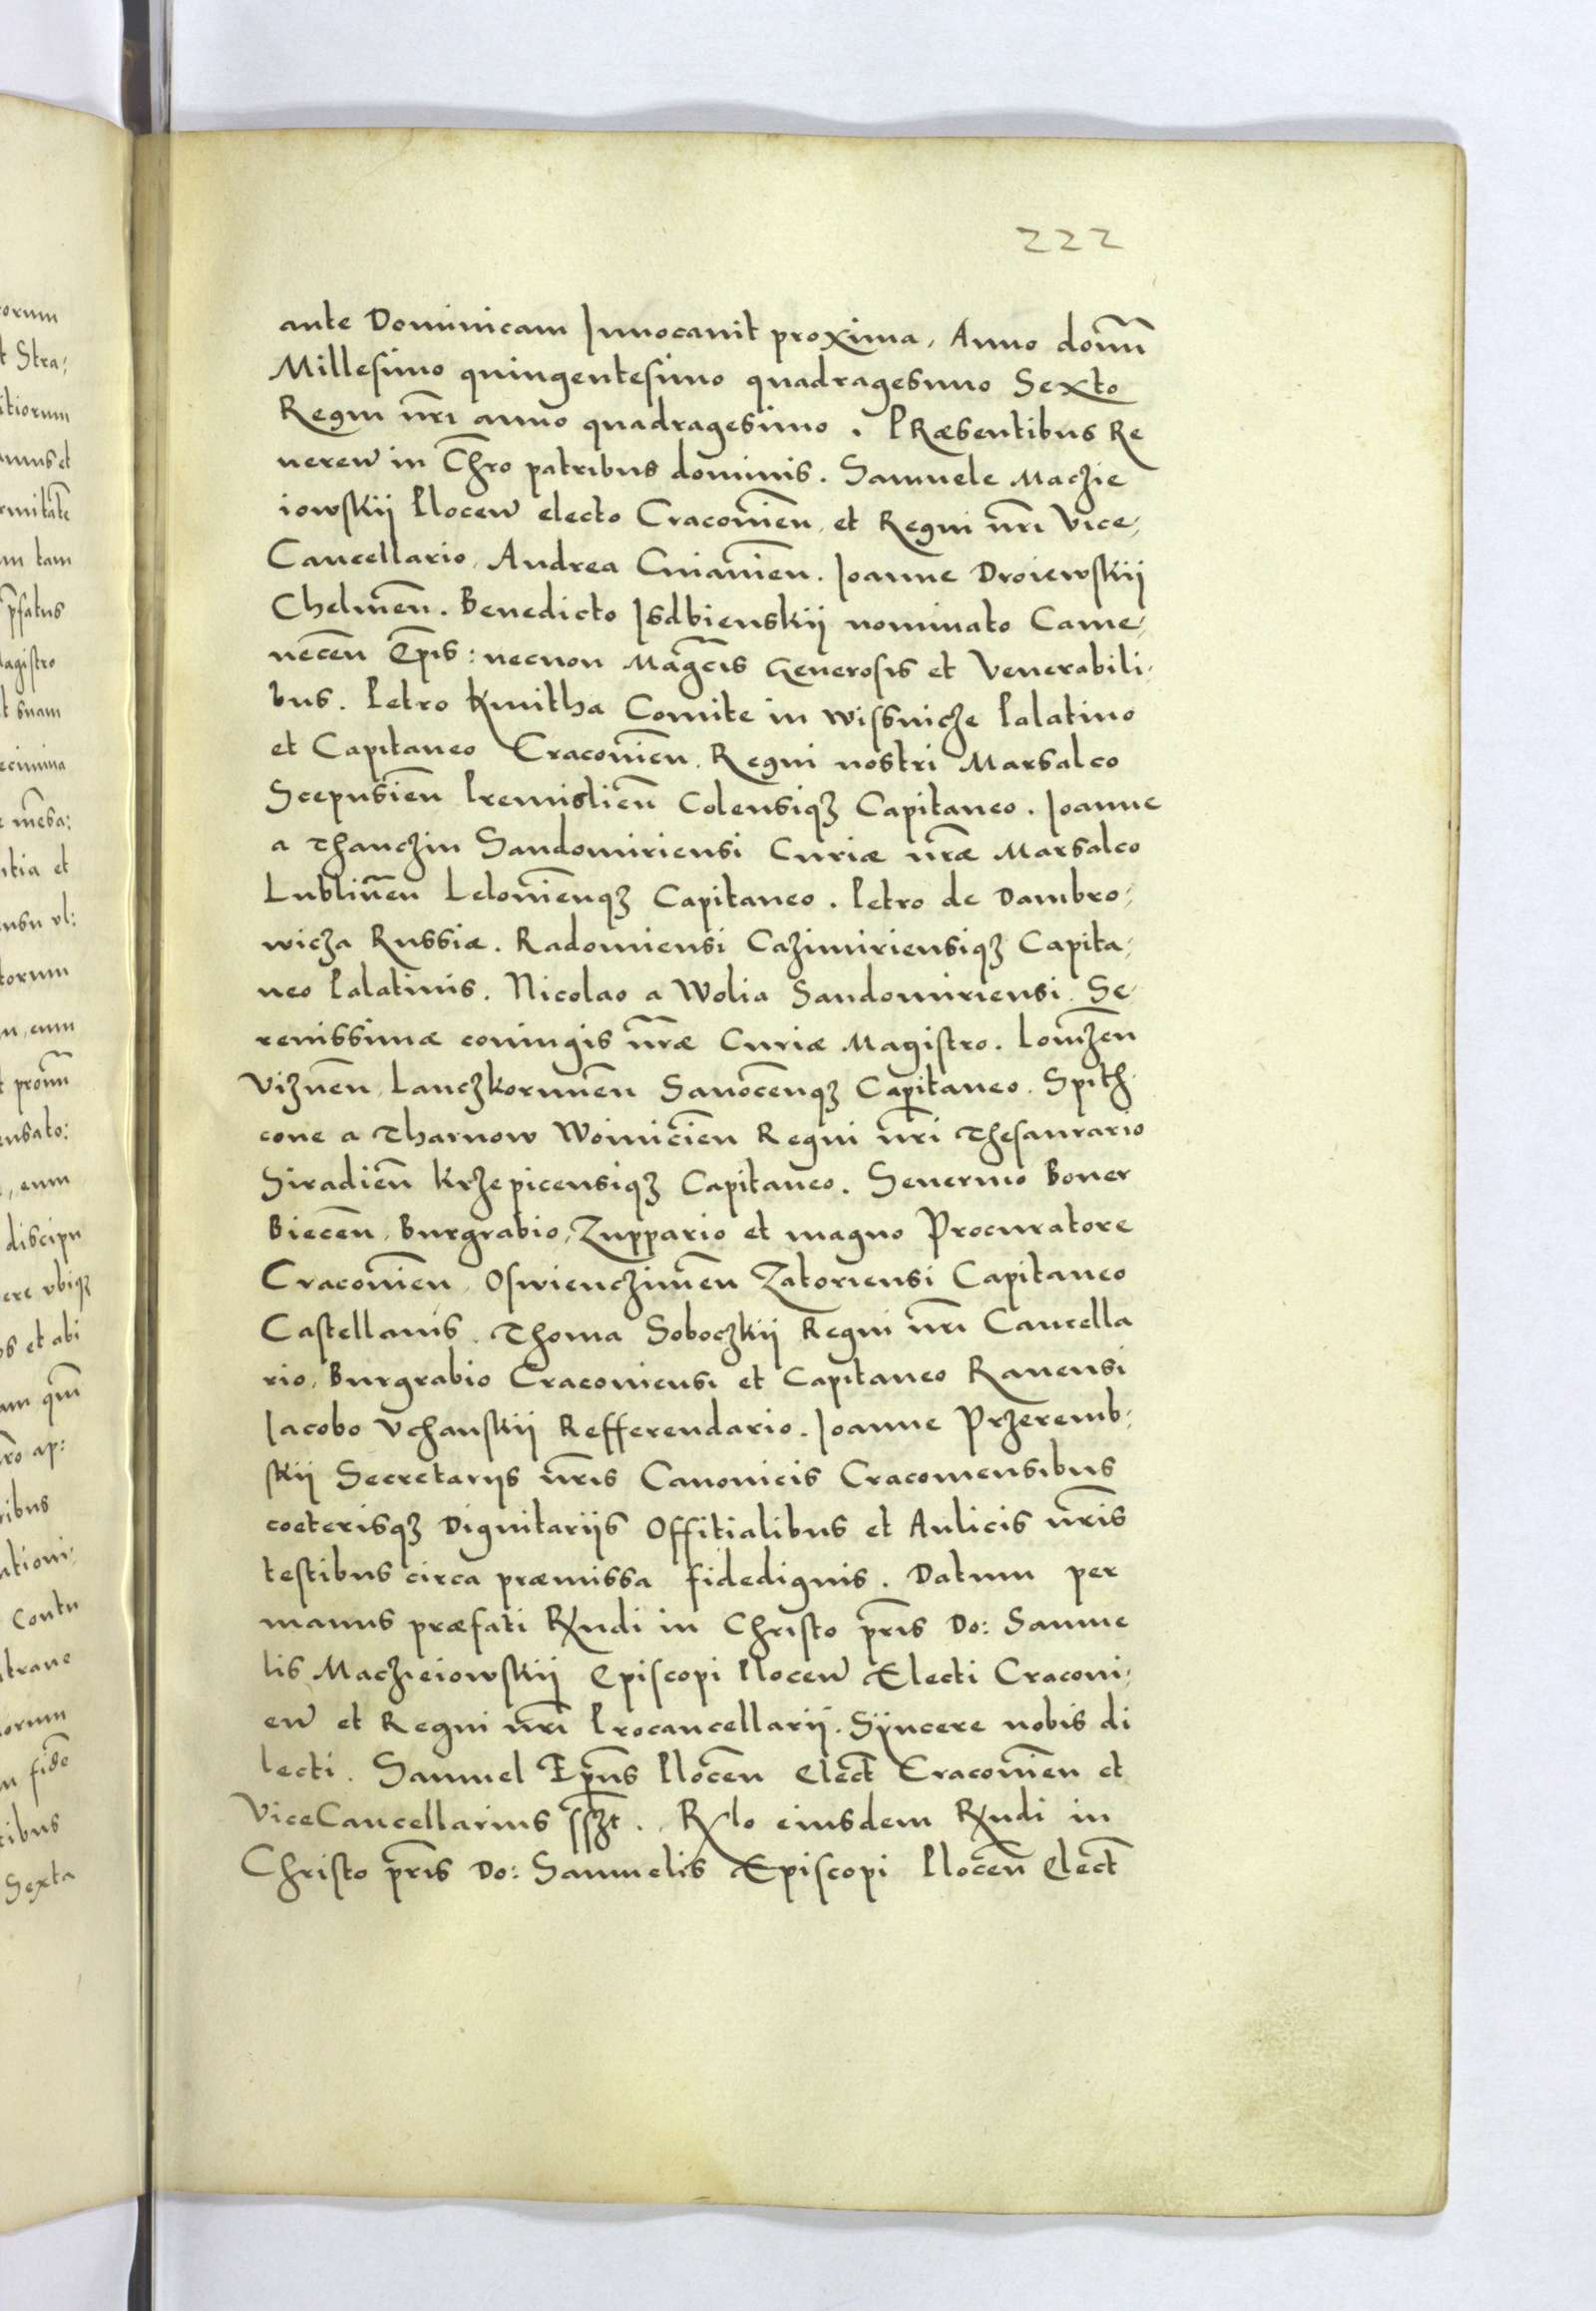 222
ante Dominicam Inuocauit proxima, Anno domn̄
Millesimo quingentesimo quadragesimo Sexto
Regni nr̄i anno quadragesimo. PRæsentibus Re
ueren̄ in Chr̄o patribus dominis. Samuele Maczie
iowskij Plocen̄ electo Cracouien̄, et Regni nr̄i Vice,
Cancellario, Andrea Cuiauien̄. Joanne Droiewskij
Chelmen̄. Benedicto Isdbienskij nominato Came,
necen̄ Ep̄is: necnon Maḡcis Generosis et Venerabili,
bus. Petro Kmitha Comite in Wissnicze Palatino
et Capitaneo Cracouien̄. Regni nostri Marsalco
Scepusien̄ Premislien̄ Colensiqȝ Capitaneo. Joanne
a Thanczin Sandomiriensi Curiæ nr̄æ Marsalco
Lublinen̄ Lelouien̄qȝ Capitaneo. Petro de Dambro,
wicza Russiæ. Radomiensi Cazimiriensiqȝ Capita,
neo Palatinis. Nicolao a Wolia Sandomiriensi. Se
renissimæ coniugis nr̄æ Curiæ Magistro. Lomzen̄
Viznen̄, Lanczkorunen̄ Sanocen̄qȝ Capitaneo. Spith
cone a Tharnow Woinicien̄ Regni nr̄i Thesaurario
Siradien̄ Krzepicensiqȝ Capitaneo. Seuerino Boner
Biecen̄, Burgrabio, Zuppario et magno Procuratore
Cracouien̄, Oswienczimen̄ Zatoriensi Capitaneo
Castellanis. Thoma Soboczkij Regni nr̄i Cancella
rio, Burgrabio Cracouiensi et Capitaneo Rauensi
Jacobo Vchanskij Refferendario. Joanne Przeremb,
skij Secretarijs nr̄is Canonicis Cracouiensibus
cœterisqȝ Dignitarijs Offitialibus et Aulicis nr̄is
testibus circa præmissa fidedignis. Datum per
manus præfati Rndi in Christo pr̄is Do: Samue
lis Maczieiowskij Episcopi Plocen̄ Electi Cracoui,
en̄ et Regni nr̄i Procancellarij. Sÿncere nobis di
lecti. Samuel Ep̄us Plocen̄ Elect̄ Cracouien̄ et
ViceCancellarius sszt. Rlo eiusdem Rndi in
Christo pr̄is Do: Samuelis Episcopi Plocen̄ Elect̄
orum
t Stra:
itiorum
um tam
p̄fatus
agistro
t suam
ecimina
ntia et
torum
discipu
ere vbiqȝ
s et abi
ro ap:
ibus
ationi,
Contu
trane
orum
tibus
Sexta